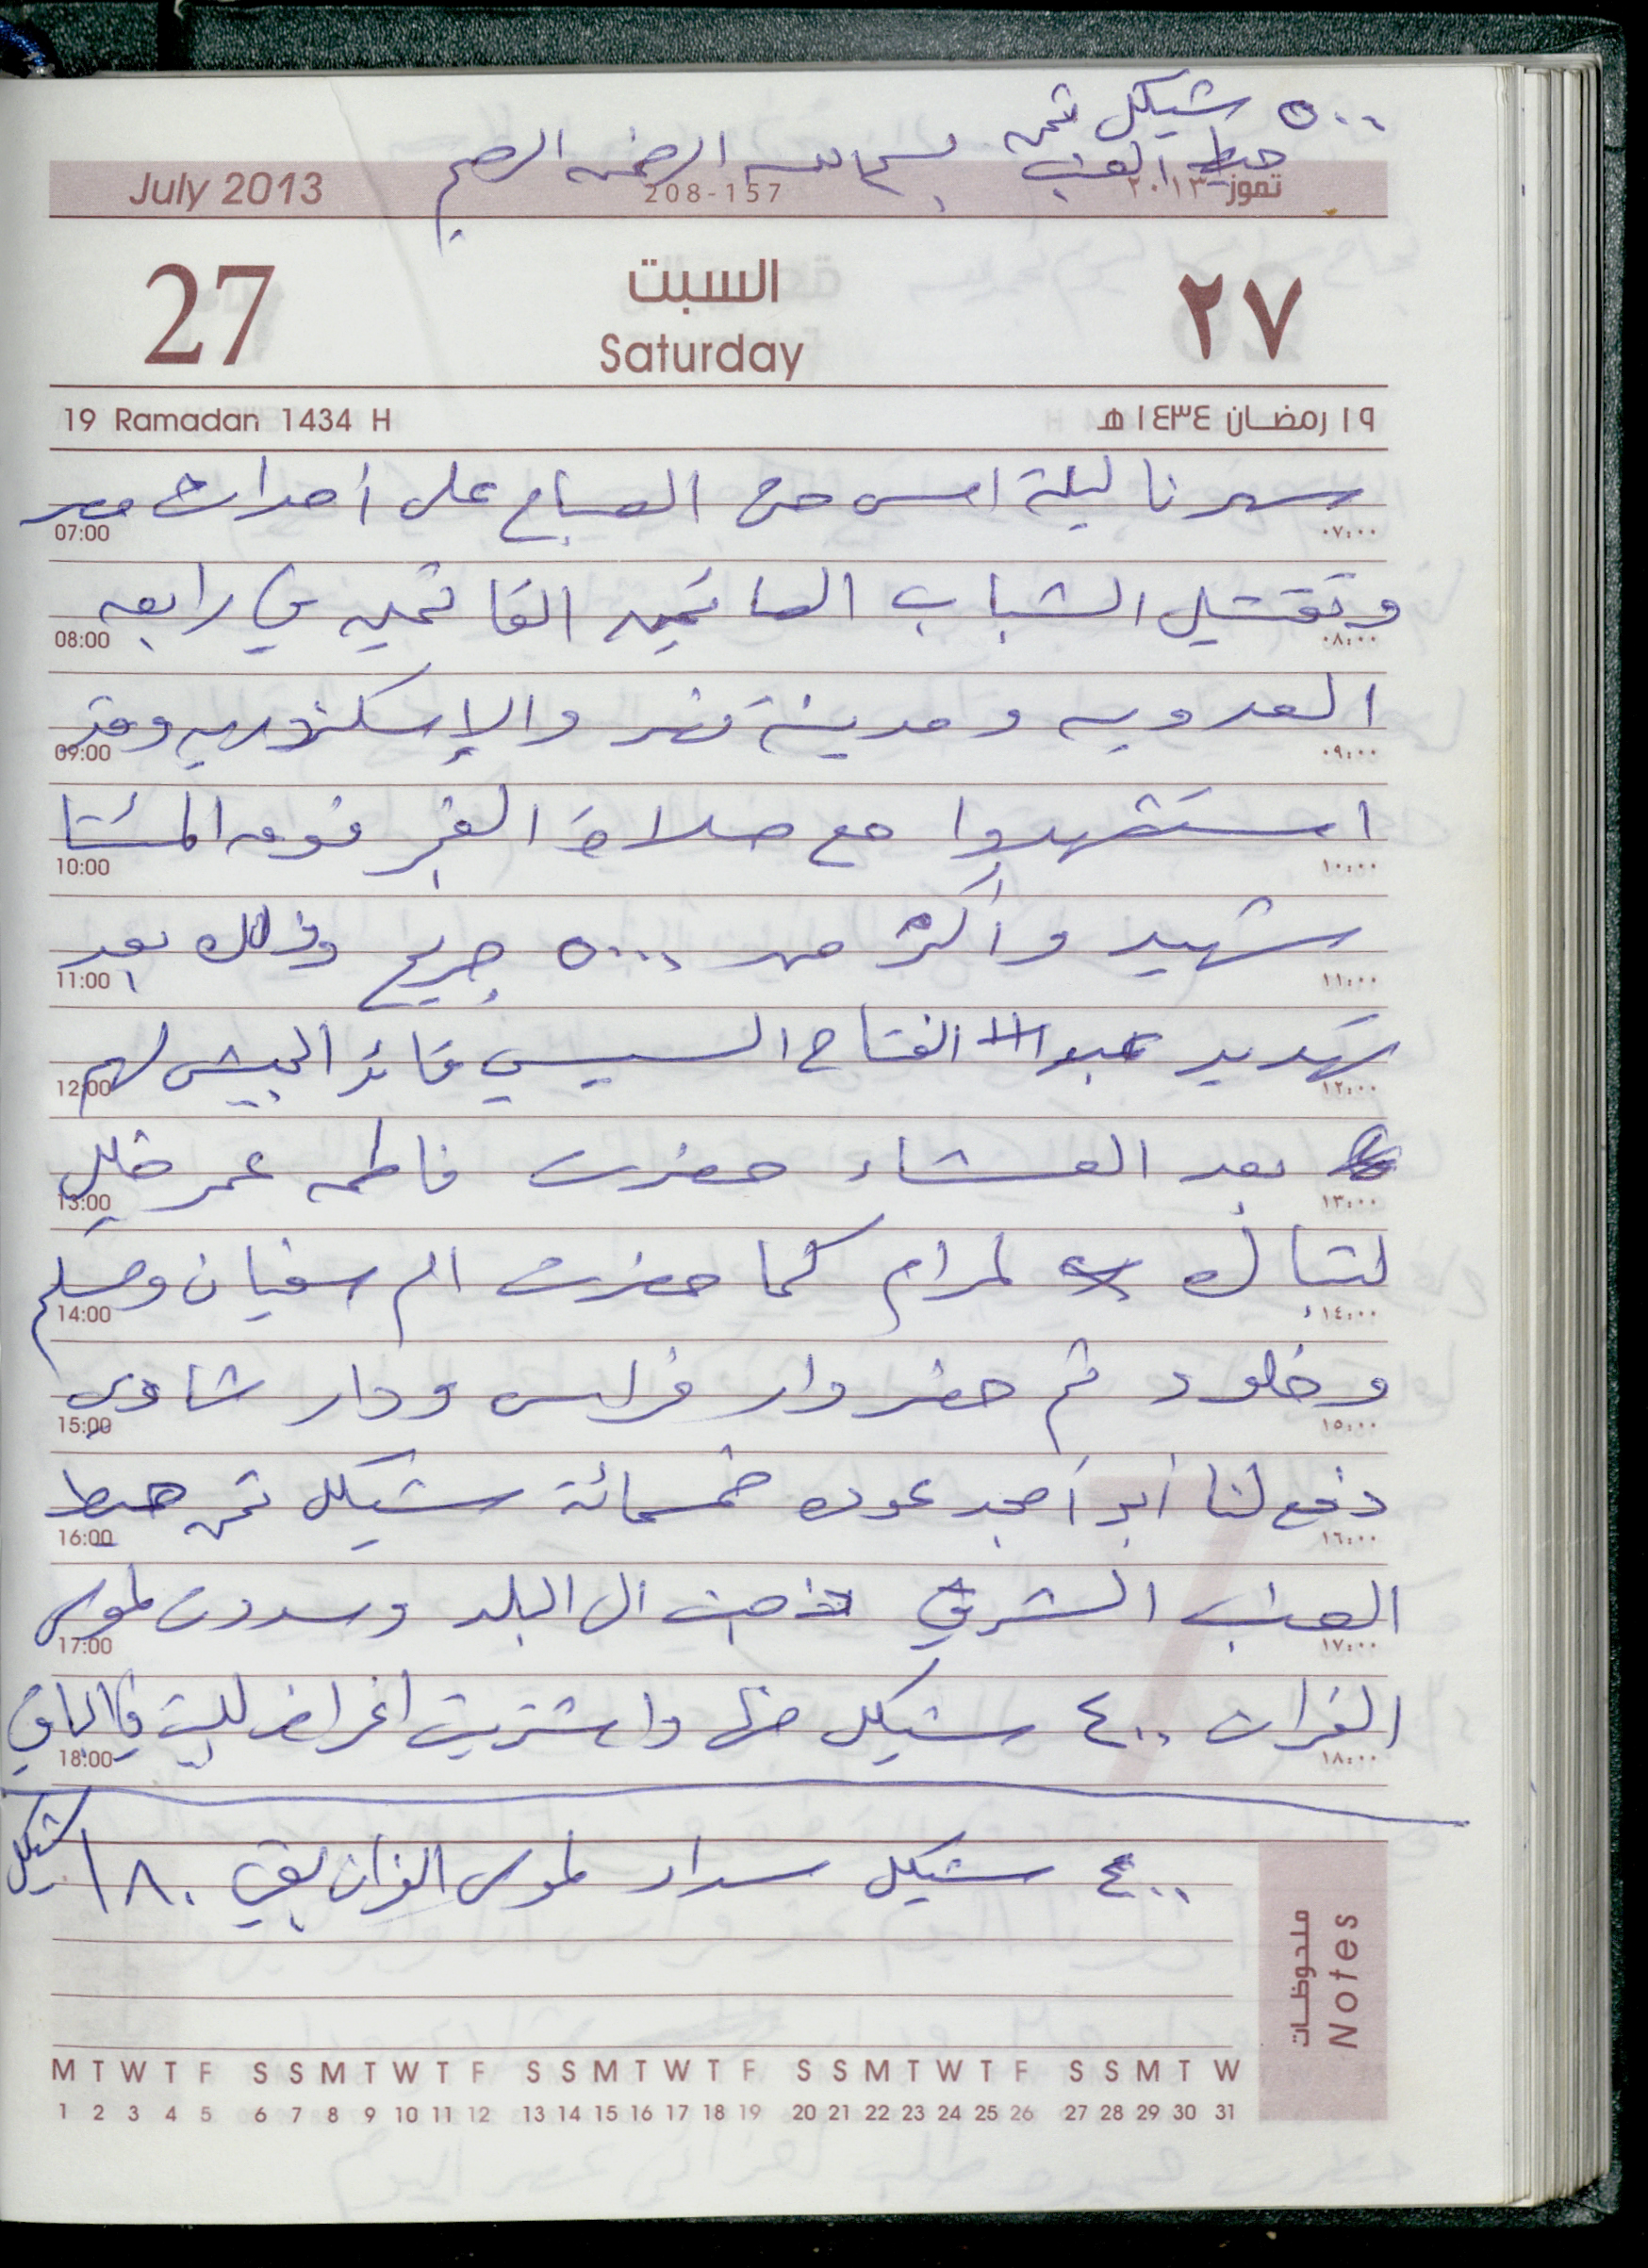 ٥٠٠ شيكل ثمن
حيط العنب
بسم الله الرحمن الرحيم
July 2013 208-157 تموز ٢٠١٣
27 السبت ٢٧
Saturday
19 Ramadan 1434 H ١٩ رمضان ١٤٣٤ هـ
سهرنا ليلة امس حتى الصباح على أحداث مصر
07:00 ٠٧:٠٠
وتقتيل الشباب الصائمين القائمين في رابعه
08:00 ٠٨:٠٠
العدويه ومدينة نصر والإسكندريه وقد
09:00 ٠٩:٠٠
استشهدوا مع صلاة الفجر فوق المئتا
10:00 ١٠:٠٠
شهيد وأكثر من ٥٠٠٠ جريح وذلك بعد
11:00 ١١:٠٠
تهديد عبد الفتاح السيسي قائد الجيش لهم
12:00 ١٢:٠٠
بعد العشاء حضرت فاطمه عمر خليل
13:00 ١٣:٠٠
لتبارك لمرام كما حضرت ام سفيان وسلم
14:00 ١٤:٠٠
وخلود ثم حضر دار فراس ودار شادي
15:00 ١٥:٠٠
دفع لنا أبو أمجد عوده خمسمائة شيكل ثمن حيط
16:00 ١٦:٠٠
العنب الشرقي ذهبت الى البلد وسددت لموسى
17:00 ١٧:٠٠
الفران ٤٠٠ شيكل منها واشتريت اغراض للبيت في الباقي
18:00 ١٨:٠٠
٤٠٠ شيكل سداد لموسى الفران بقي ١٨٠ شيكل
ملحوظات
Notes
M T W T F S S M T W T F S S M T W T F S S M T W T F S S M T W
1 2 3 4 5 6 7 8 9 10 11 12 13 14 15 16 17 18 19 20 21 22 23 24 25 26 27 28 29 30 31